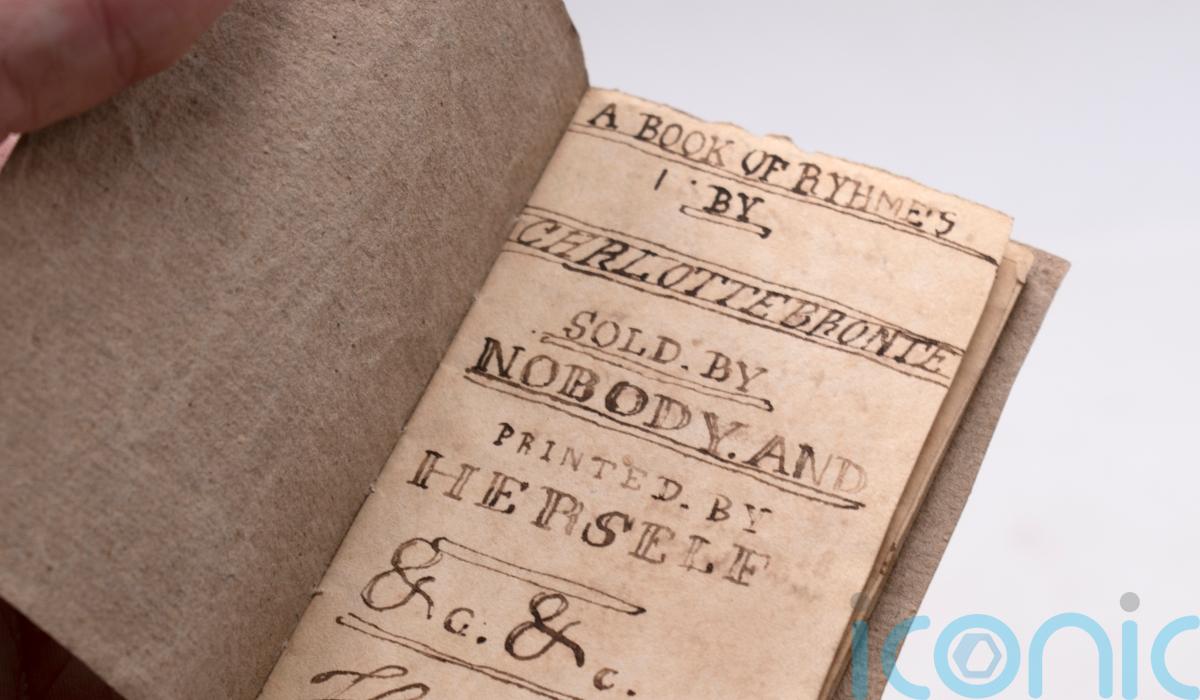 A BOOK OF RYHME'S
BY
CHARLOTTE BRONTE
SOLD. BY
NOBODY. AND
PRINTED. BY
HERSELF
&c. &c.
iconic